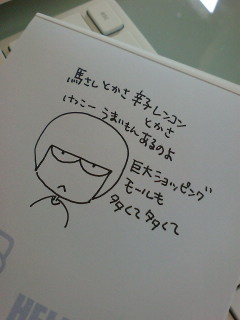 馬さし とかさ 辛子レンコン
とかさ
けっこー うまいもん あるのよ
巨大ショッピング
モールも
タタくて タタくて
HELL